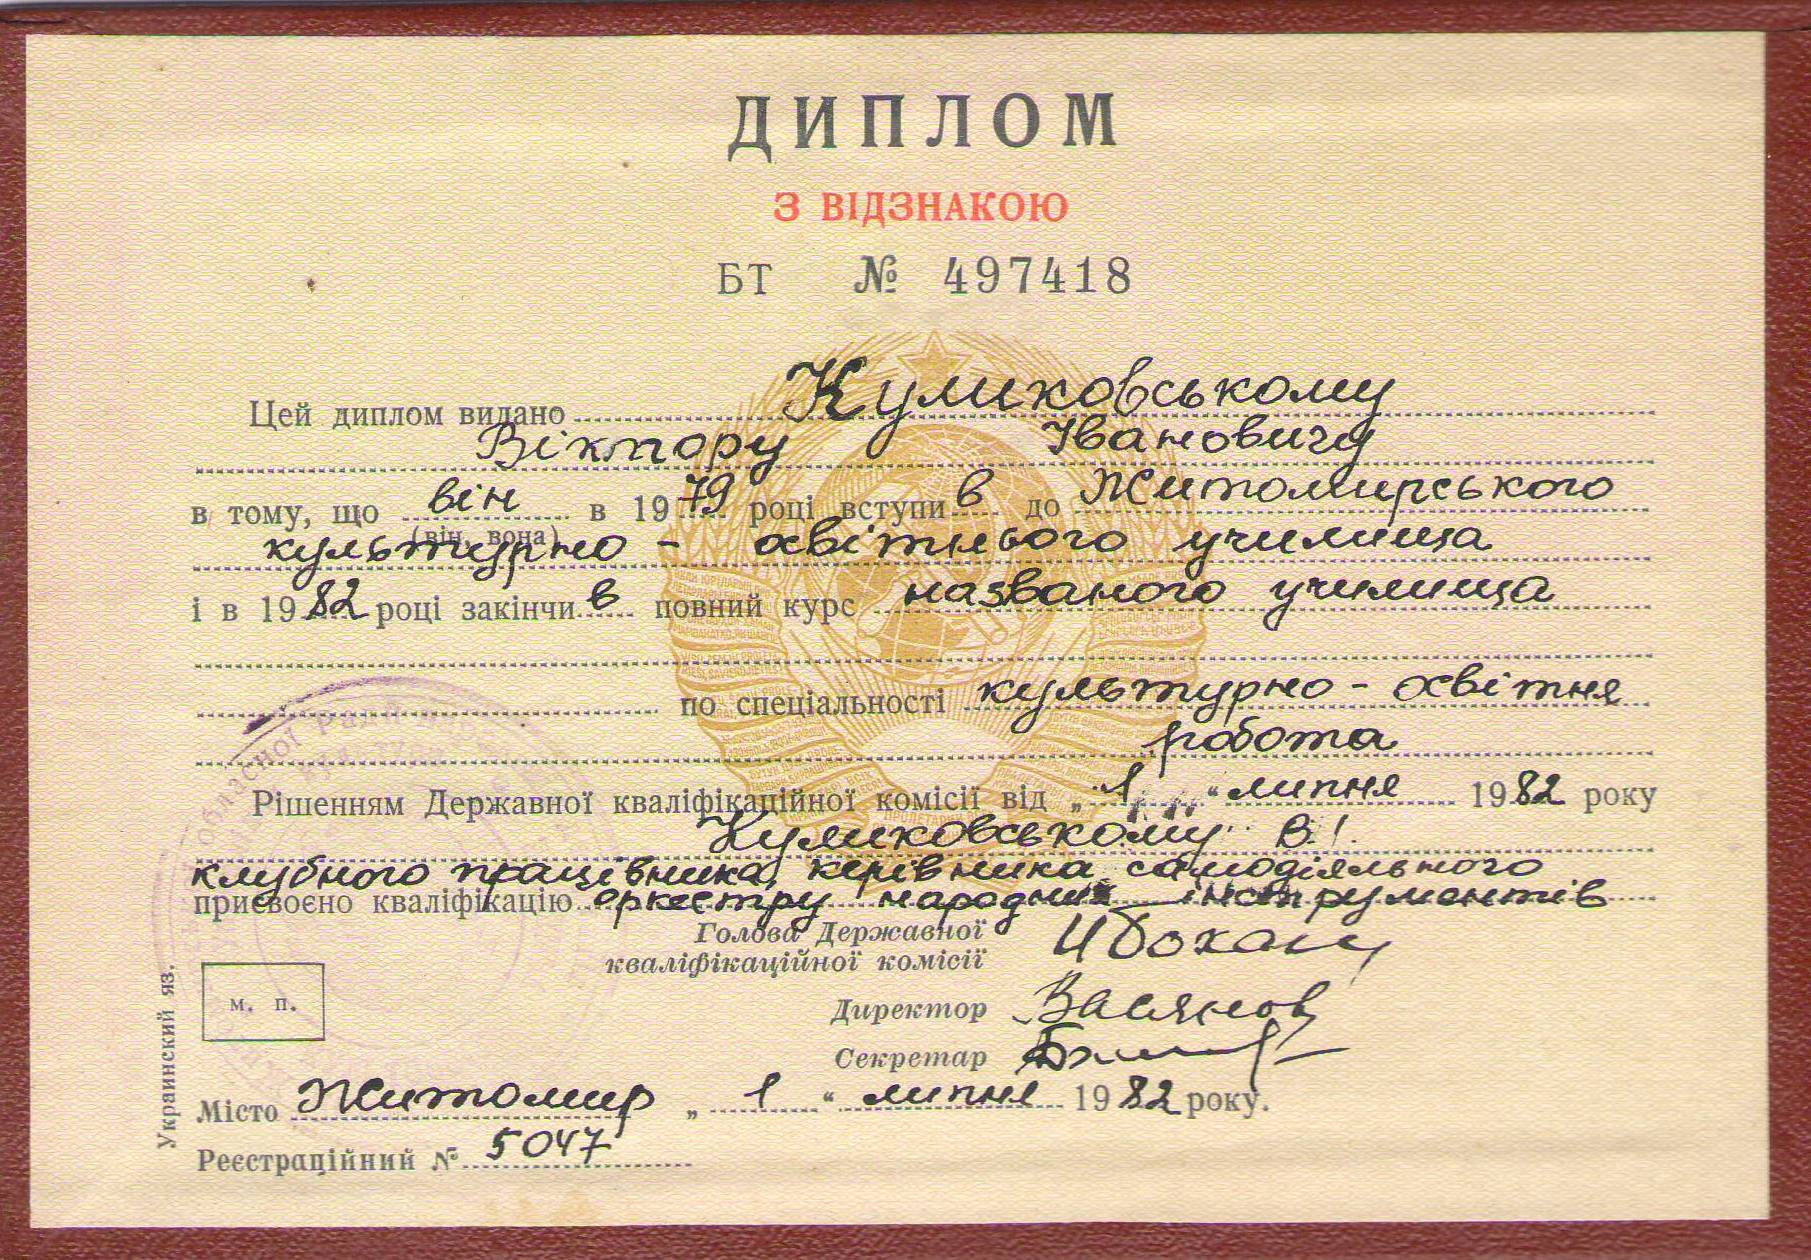 ДИПЛОМ
З ВІДЗНАКОЮ
БТ № 497418
Цей диплом видано Куликовському
Віктору Івановичу
в тому, що він в 1979 році вступив до Житомирського
(він, вона)
культурно - освітнього училища
і в 1982 році закінчив повний курс названого училища
по спеціальності культурно - освітня
робота
Рішенням Державної кваліфікаційної комісії від „1“ липня 1982 року
Куликовському В.І.
клубного працівника, керівника самодіяльного
присвоєно кваліфікацію оркестру народних інструментів
Голова Державної
кваліфікаційної комісії
Директор
Секретар
м. п.
Місто Житомир „1“ липня 1982 року.
Реєстраційний № 5047
Украинский яз.